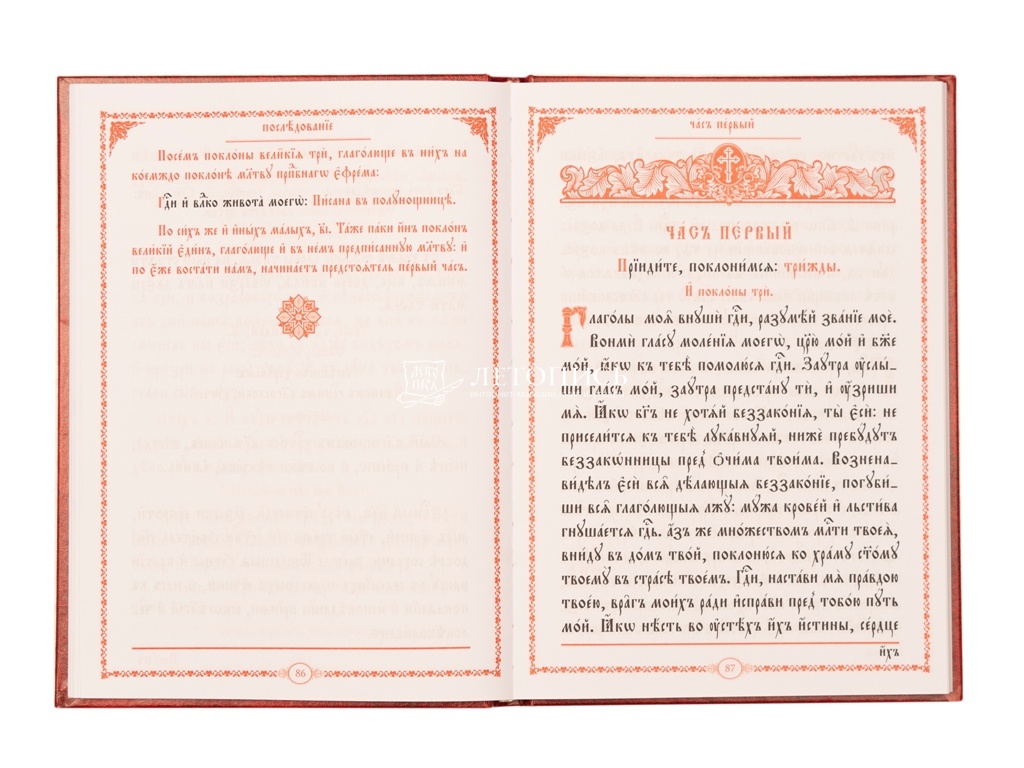 послѣ́дованїе
Посе́мъ покло́ны вели̑кїѧ трѝ, глаго́люще въ ни́хъ на
кое́мждо покло́нѣ мл҃тву прп҇бнагѡ є҆фре́ма:
Гд҇и и҆ влⷣко живота̀ моегѡ̀: Пи́сана въ полу́нощницѣ.
По си́хъ же и҆ и҆́ныхъ ма́лыхъ, в҃і. Та́же па́ки и҆́нъ покло́нъ
вели́кїй є҆ди́нъ, глаго́люще и҆ въ не́мъ предпи́санную мл҃тву: и҆
по є҆́же воста́ти на́мъ, начина́етъ предстоѧ́тель пе́рвый ча́съ.
86
ча́съ пе́рвый
ЧА́СЪ ПЕ́РВЫЙ
Прїиди́те, поклони́мсѧ: три́жды.
И҆ покло́ны трѝ.
Глаго́лы моѧ̑ внушѝ гдⷭ҇и, разꙋмѣ́й зва́нїе моѐ.
Вонмѝ гла́сꙋ моле́нїѧ моегѡ̀, цр҃ю̀ мо́й и҆ бж҃е
мо́й, ꙗ҆́кѡ къ тебѣ̀ помолю́сѧ гдⷭ҇и. Заꙋ́тра ᲂу҆слы́_
ши гла́съ мо́й, заꙋ́тра предста́нꙋ тѝ, и҆ ᲂу҆́зриши
мѧ̀. Ꙗ҆́кѡ бг҃ъ не хотѧ́й беззако́нїѧ, ты̀ є҆сѝ: не
присели́тсѧ къ тебѣ̀ лꙋка́внꙋѧй, нижѐ пребꙋ́дꙋтъ
беззако́нницы пред̾ ѻ҆чи́ма твои́ма. Вознена_
ви́дѣлъ є҆сѝ всѧ̑ дѣ́лающыѧ беззако́нїе, погꙋби́_
ши всѧ̑ глаго́лющыѧ лжꙋ̀: мꙋ́жа крове́й и҆ льсти́ва
гнꙋша́етсѧ гдⷭ҇ь. а҆́зъ же мно́жествомъ млⷭ҇ти твоеѧ̀,
вни́дꙋ въ до́мъ тво́й, поклоню́сѧ ко хра́мꙋ ст҃о́мꙋ
твоемꙋ̀ въ стра́сѣ твое́мъ. Гдⷭ҇и, наста́ви мѧ̀ пра́вдою
твое́ю, вра̑гъ мои́хъ ра́ди и҆спра́ви пред̾ тобо́ю пꙋ́ть
мо́й. Ꙗ҆́кѡ нѣ́сть во ᲂу҆стѣ́хъ и҆́хъ и҆́стины, се́рдце
и҆́хъ
87
ЛЕТОПИСЬ